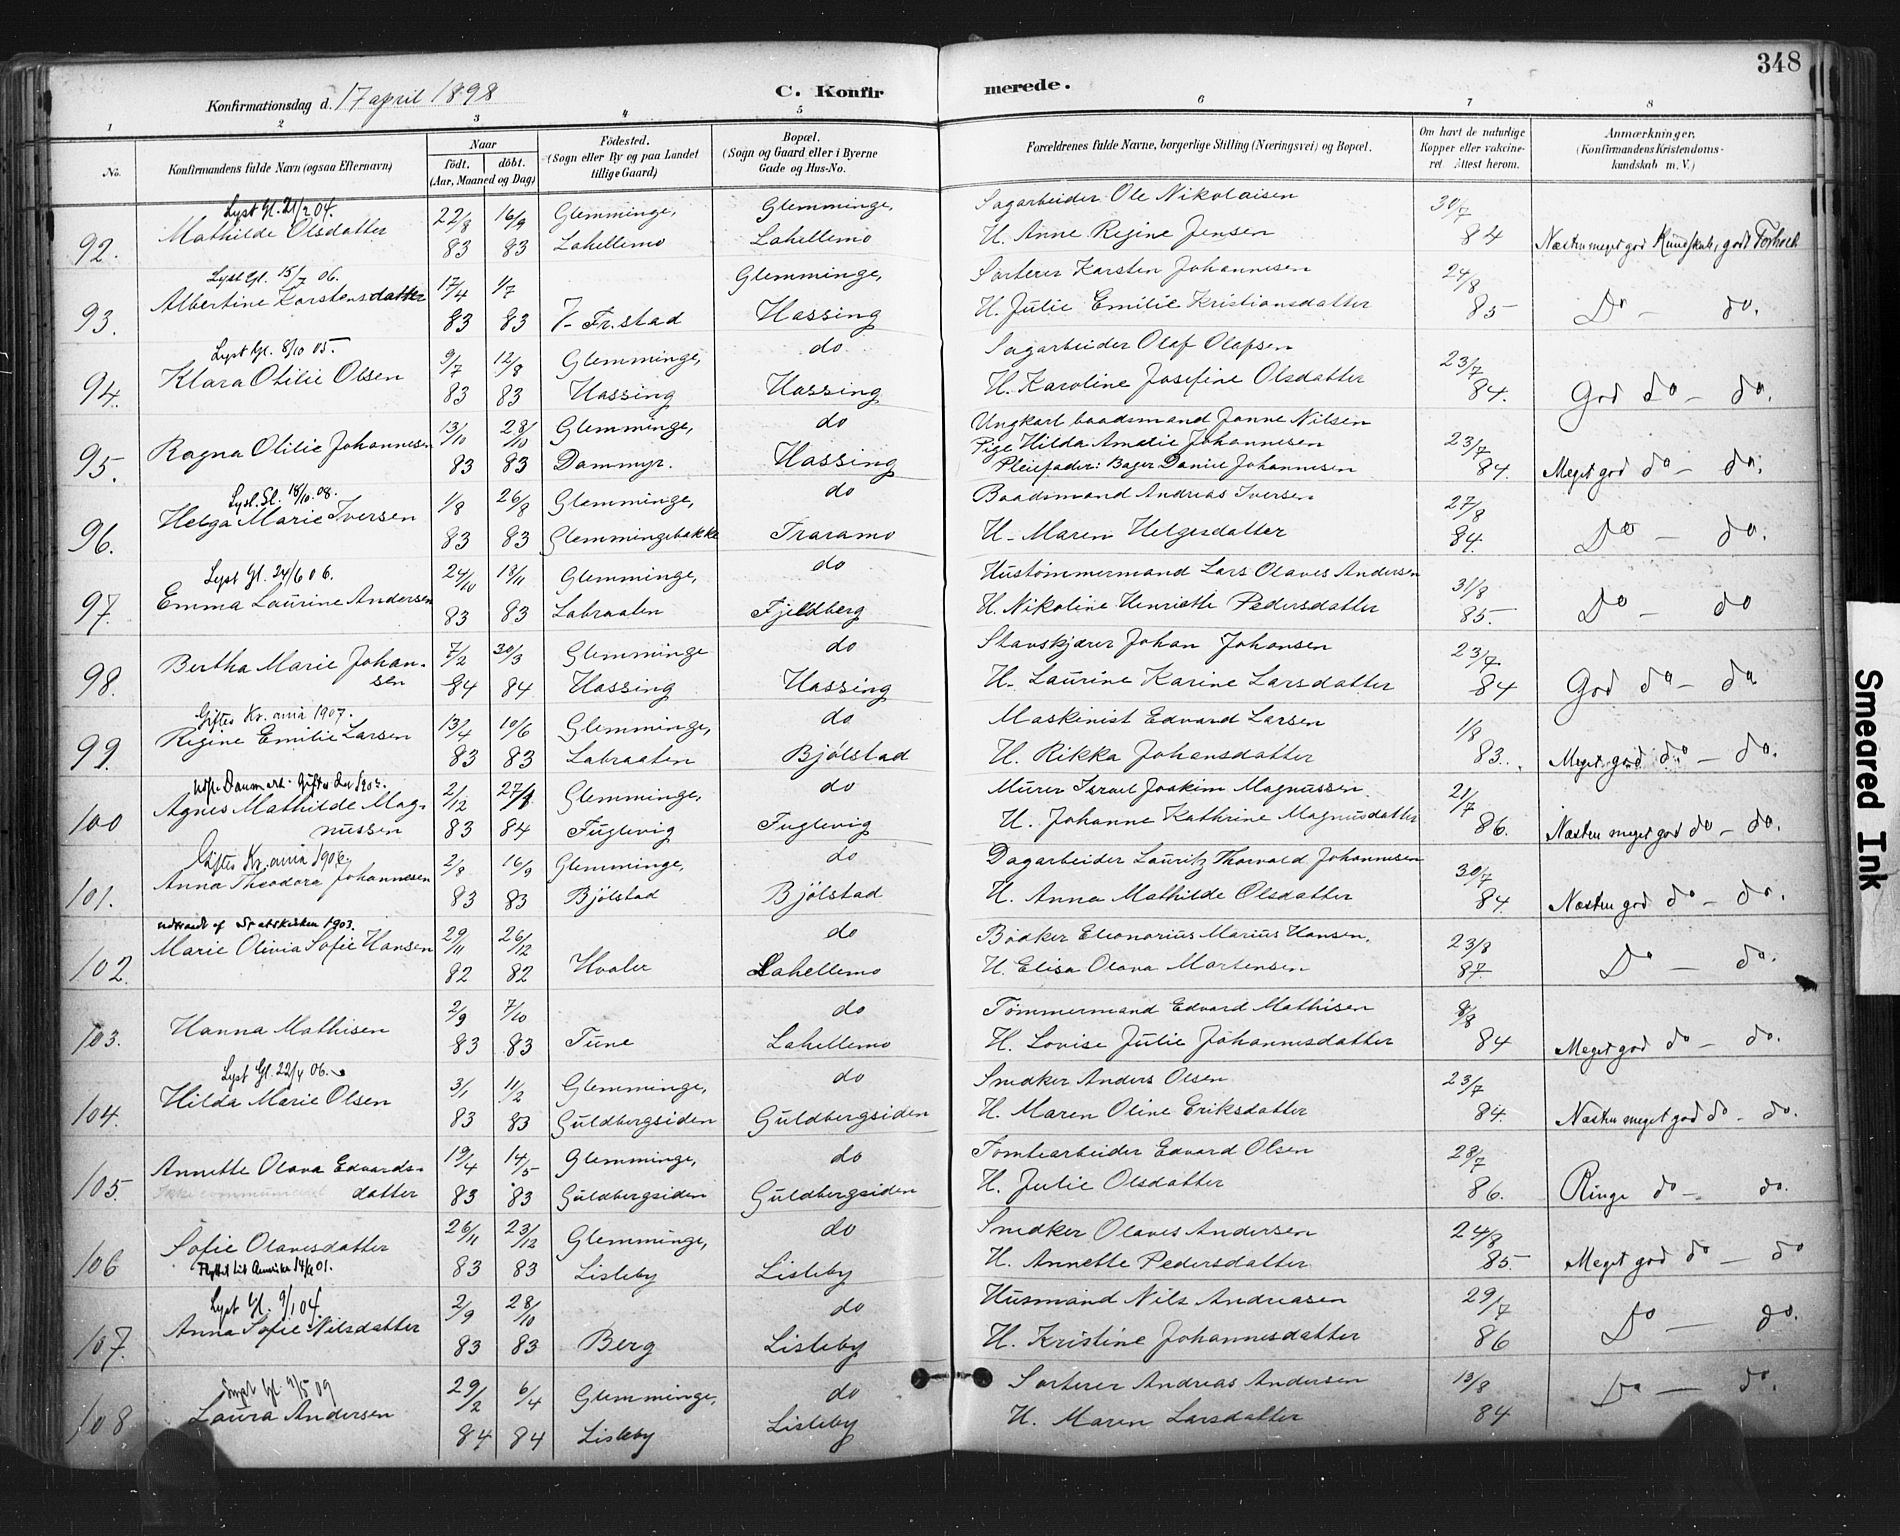 348
Konfirmationsdag d. 17 april 1898 C. Konfirmerede.
1 2 3 4 5 6 7 8
No. Konfirmandens fulde Navn (ogsaa Efternavn) Naar födt. döbt. (Aar, Maaned og Dag) Födested. (Sogn eller By og paa Landet tillige Gaard) Bopæl. (Sogn og Gaard eller i Byerne Gade og Hus-No. Forældrenes fulde Navne, borgerlige Stilling (Næringsvei) og Bopæl. Om havt de naturlige Kopper eller vakcineret. Attest herom. Anmærkninger. (Konfirmandens Kristendomskundskab m. V.)
Lyst Gl. 21/2 04.
Mathilde Olsdatter 22/8 16/9 Glemminge, Glemminge, Sagarbeider Ole Nikolaisen 30/7
92. 83 83 Lahellemo Lahellemo H. Anne Regine Jensen 84 Næsten meget god Kundskab, godt Forhold
Lyst Gl. 15/7 06.
Albertine Karstensdatter 17/4 1/7 Glemminge, Sorterer Karsten Johannesen 24/8
93. 83 83 V. Fr.stad Hassing H. Julie Emilie Kristiansdatter 85 Do — do.
Lyst Gl. 8/10 05.
Klara Otilie Olsen 9/7 12/8 Glemminge, do Sagarbeider Olaf Olafsen 23/7
94. 83 83 Hassing Hassing H. Karoline Josefine Olsdatter 84. God do — do.
Ragna Otilie Johannesen 13/10 28/10 Glemminge, do Ungkarl baadsmand Janne Nilsen
Pige Hilda Amalie Johannesen 23/7
95. 83 83 Dammyr. Hassing Pleiefader: Bager Daniel Johannesen 84. Meget god do — do.
Lyst Gl. 18/10 08.
Helga Marie Iversen 1/8 26/8 Glemminge, do Baadsmand Andreas Iversen 27/8
96. 83 83 Glemmingebakke Traramo H. Maren Helgesdatter 84. Do — do.
Lyst Gl. 24/6 06.
Emma Laurine Andersen 24/10 18/11 Glemminge, do Hustømmermand Lars Olaves Andersen 31/8
97. 83 83 Labraaten Fjeldberg H. Nikoline Henriette Pedersdatter 85. Do — do
Bertha Marie Johansen 7/2 30/3 Glemminge do Stavskjærer Johan Johansen 23/7
98. 84 84 Hassing Hassing H. Laurine Karine Larsdatter 84 God do — do
Giftes Kr.ania 1907.
Regine Emilie Larsen 13/4 10/6 Glemminge, do Maskinist Edvard Larsen 1/8
99. 83 83 Labraaten Bjölstad H. Rikka Johansdatter 83. Meget god do — do.
Agnes Mathilde Magnussen 2/12 27/1 Glemminge, do Murer Israel Joakim Magnussen 21/7
100 83 84 Fuglevig Fuglevig H. Johanne Kathrine Magnusdatter 86. Næsten meget god do — do.
Giftes Kr.ania 1906
Anna Theodora Johannesen 2/8 16/9 Glemminge, do Dagarbeider Lauritz Thorvald Johannesen 30/7
101. 83 83 Bjölstad Bjölstad H. Anna Mathilde Olsdatter 84. Næsten god do — do.
udtraadt af Statskirken 1903.
Marie Olivia Sofie Hansen 29/11 26/12 do Bödker Eleonorius Marius Hansen. 23/8
102. 82 82 Hvaler Lahellemo H. Elisa Olava Martensen 87. Do — do.
Hanna Mathisen 2/9 7/10 do Tømmermand Edvard Mathisen 8/8
103. 83 83 Tune Lahellemo H. Lovise Julie Johannesdatter 84 Meget god do — do.
Lyst Gl. 22/4 06.
Hilda Marie Olsen 3/1 11/2 Glemminge, do Snedker Anders Olsen 23/7
104. 83 83 Guldbergsiden Guldbergsiden H. Maren Oline Eriksdatter 84. Næsten meget god do — do.
Annette Olava Edvardsdatter 19/4 14/5 Glemminge, do Tomtearbeider Edvard Olsen 28/7
105. Ikke communiceret 83 83 Guldbergsiden Guldbergsiden H. Julie Olsdatter 86. Ringe do — do.
Sofie Olavesdatter 26/11 23/12 Glemminge, do Snedker Olaves Andersen 24/8
106 Flyttet til Amerika 14/9 01. 83 83 Lisleby Lisleby H. Annette Pedersdatter 85. Meget god do — do
Lyst Gl. 9/1 04
Anna Sofie Nilsdatter 2/9 28/10 do Husmand Nils Andreasen 29/7
107. 83 83 Berg Lisleby H. Kristine Johannesdatter 86 Do — do.
Lyst Gl. 9/5 09
Laura Andersen 29/2 6/4 Glemminge, do Sorterer Andreas Andersen 13/8
108 84 84 Lisleby Lisleby H. Maren Larsdatter 84 Do — do.
Smeared Ink